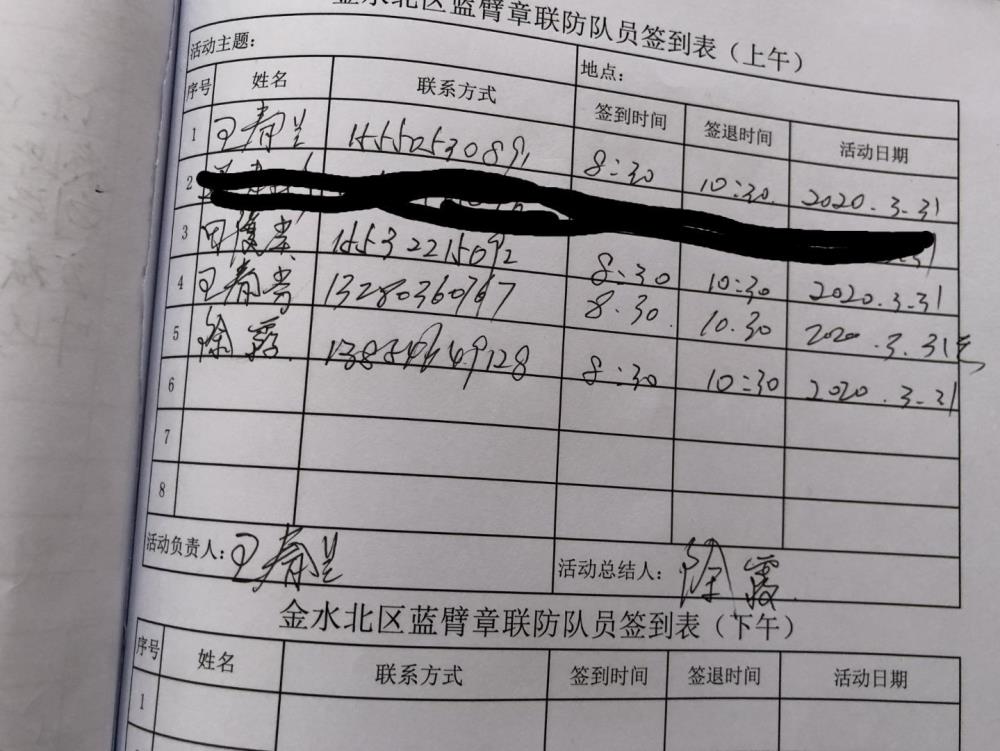 金水北区蓝臂章联防队员签到表（上午）
活动主题： 地点：
序号 姓名 联系方式 签到时间 签退时间 活动日期
1 王春兰 15550530891 8:30 10:30 2020.3.31
2
3 15532215092 8:30 10:30 2020.3.31
4 王春 13280360767 8.30 10.30 2020.3.31
5 徐霞 138549649128 8:30 10:30 2020.3.31
6
7
8
活动负责人：王春兰 活动总结人：徐霞
金水北区蓝臂章联防队员签到表（下午）
序号 姓名 联系方式 签到时间 签退时间 活动日期
1